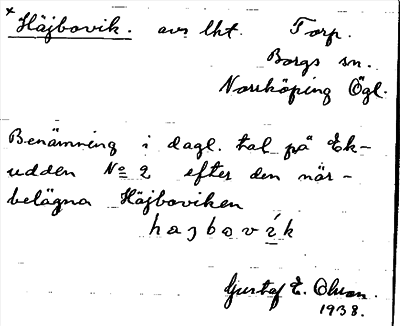 × Häjbovik. avs lht. Torp.
Borgs sn.
Norrköping Ögl.
Benämning i dagl. tal på Ek-
udden No 2 efter den när-
belägna Häjboviken
hajbovik
Gustaf E. Olson.
1938.